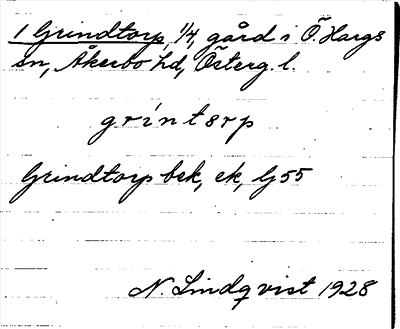 1 Grindtorp, 1/4, gård i Ö. Hargs
sn, Åkerbo hd, Österg. l.
gríntorp
Grindtorp bsk, ek, G 55
N. Lindqvist 1928